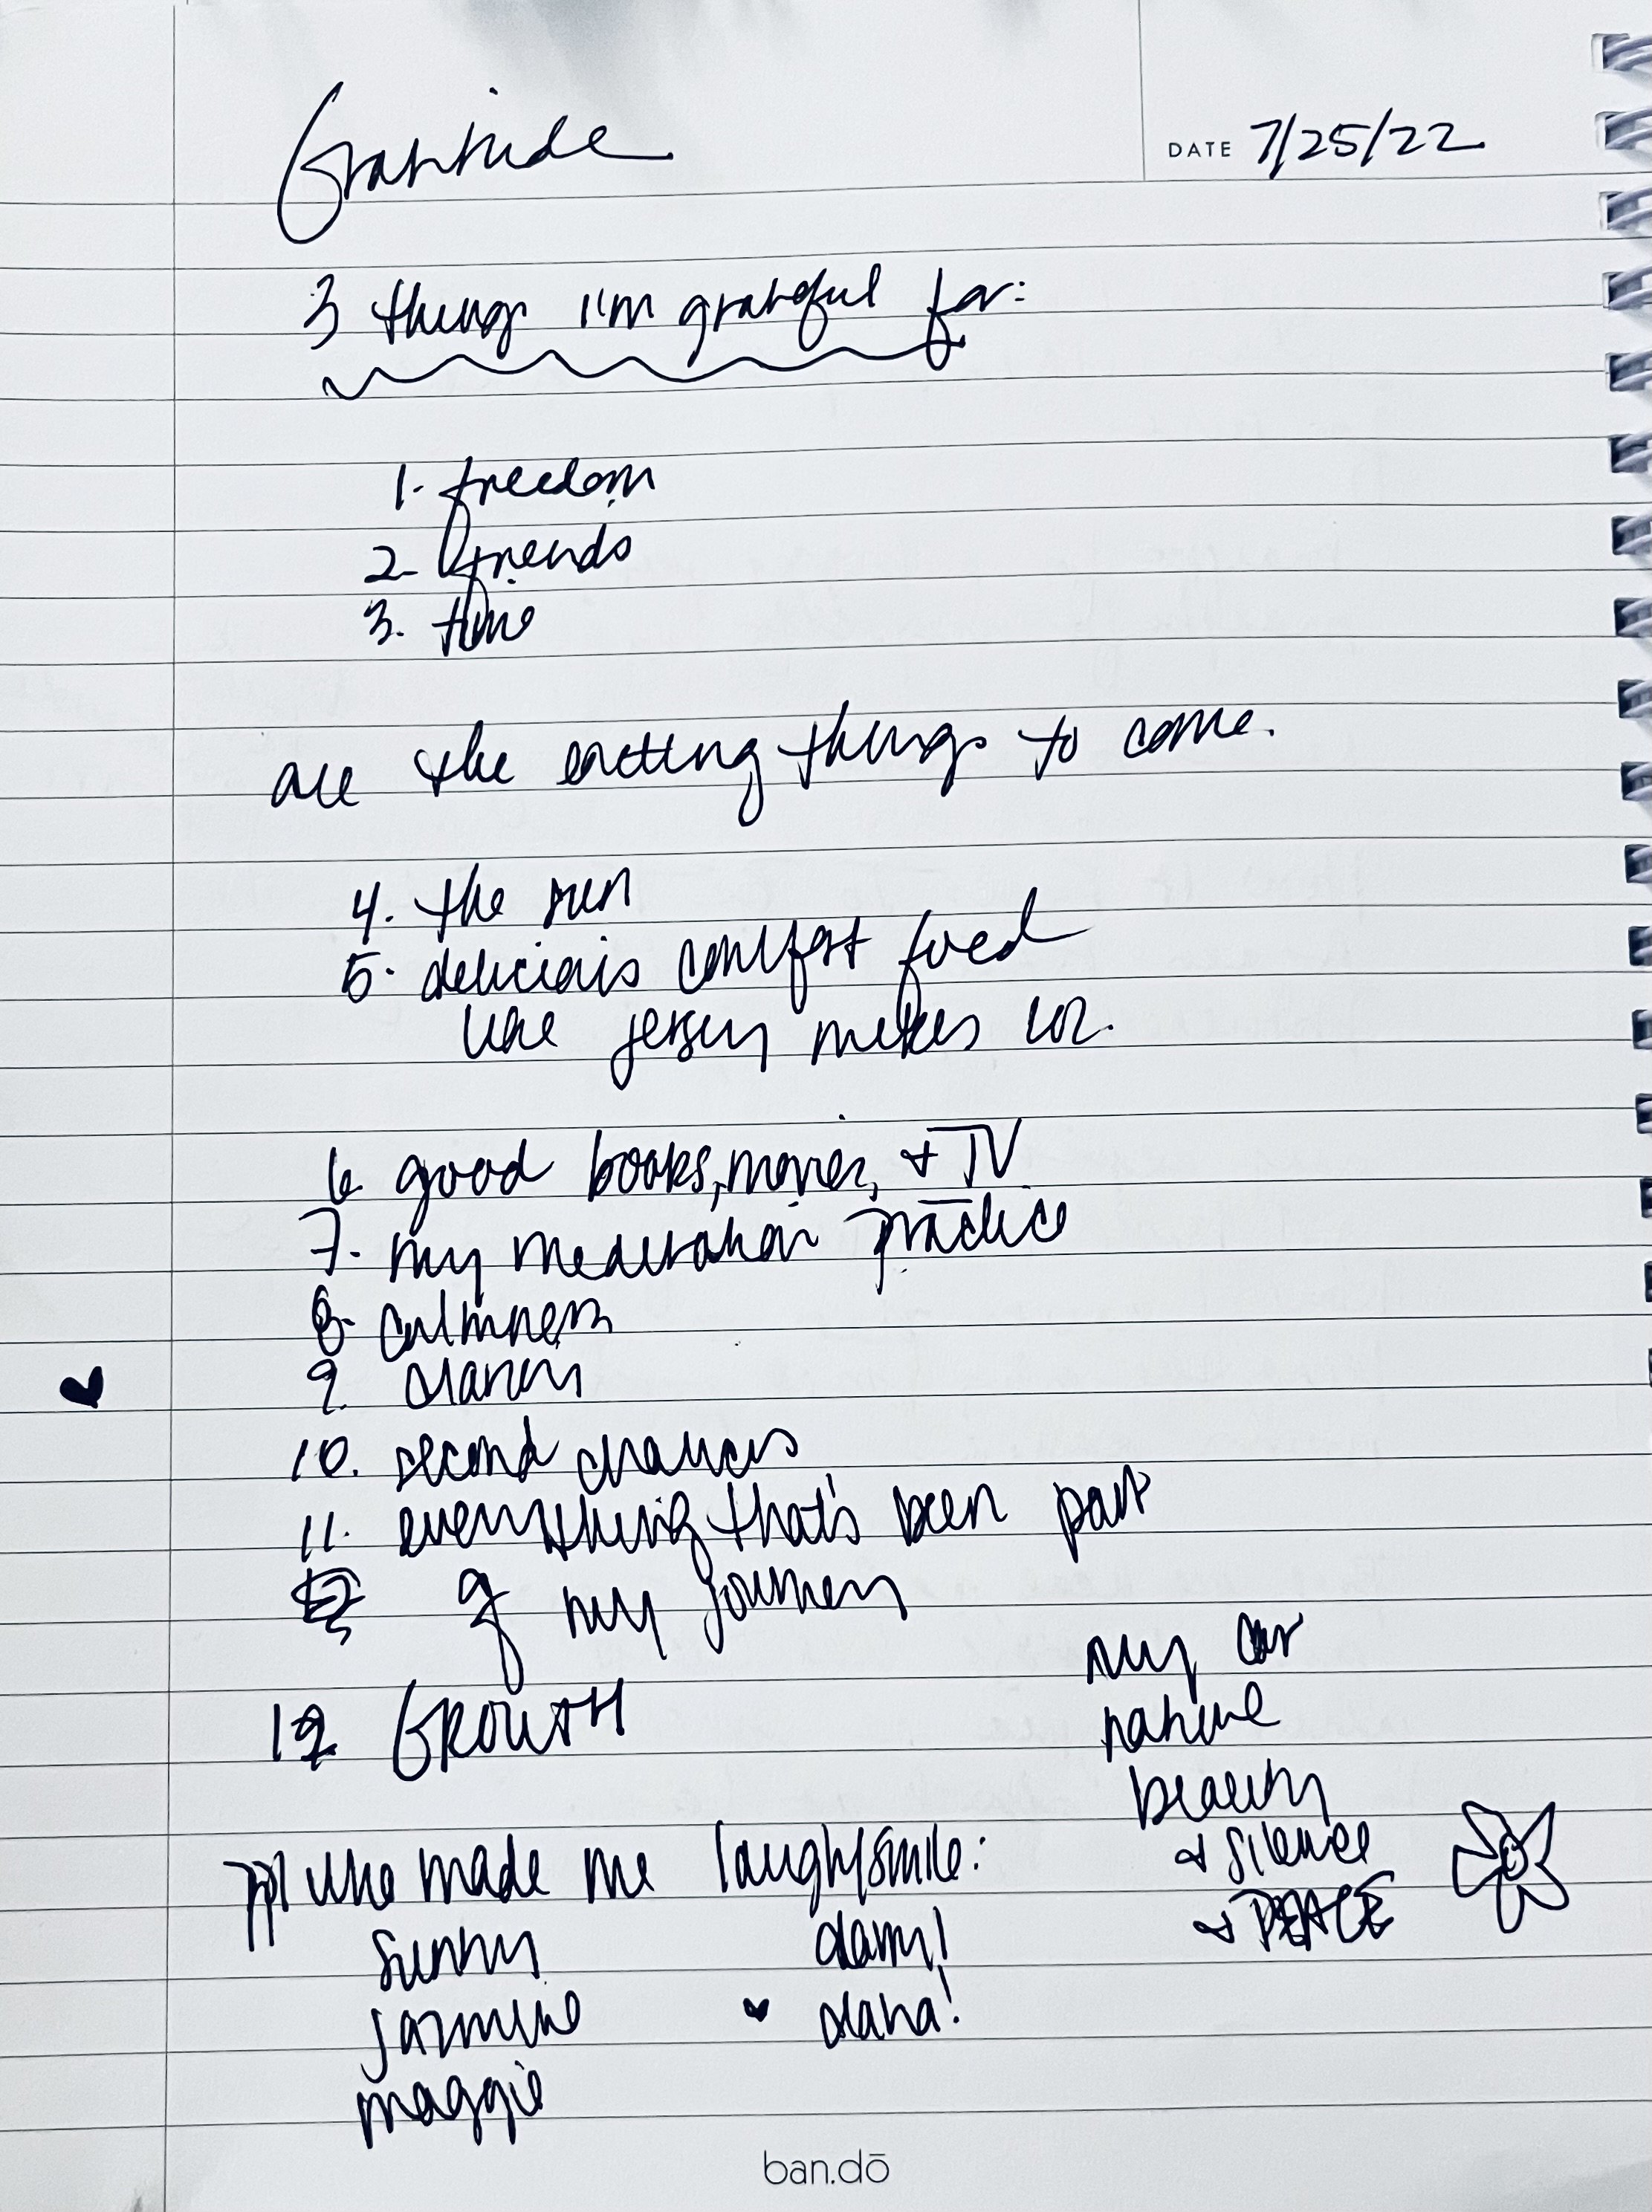 Gratitude
DATE 7/25/22
3 things I'm grateful for:
1. freedom
2. friends
3. time
all the exciting things to come.
4. the sun
5. delicious comfort food
like jersey makes lol.
6. good books, movies, + TV
7. my meditation practice
8. calmness
9. clarity
10. second chances
11. everything that's been part
of my journey
12. GROWTH
my car
nature
beauty
+ silence
+ PEACE
ppl who made me laugh/smile:
sunny
danny!
jazmine
dana!
maggie
ban.dō